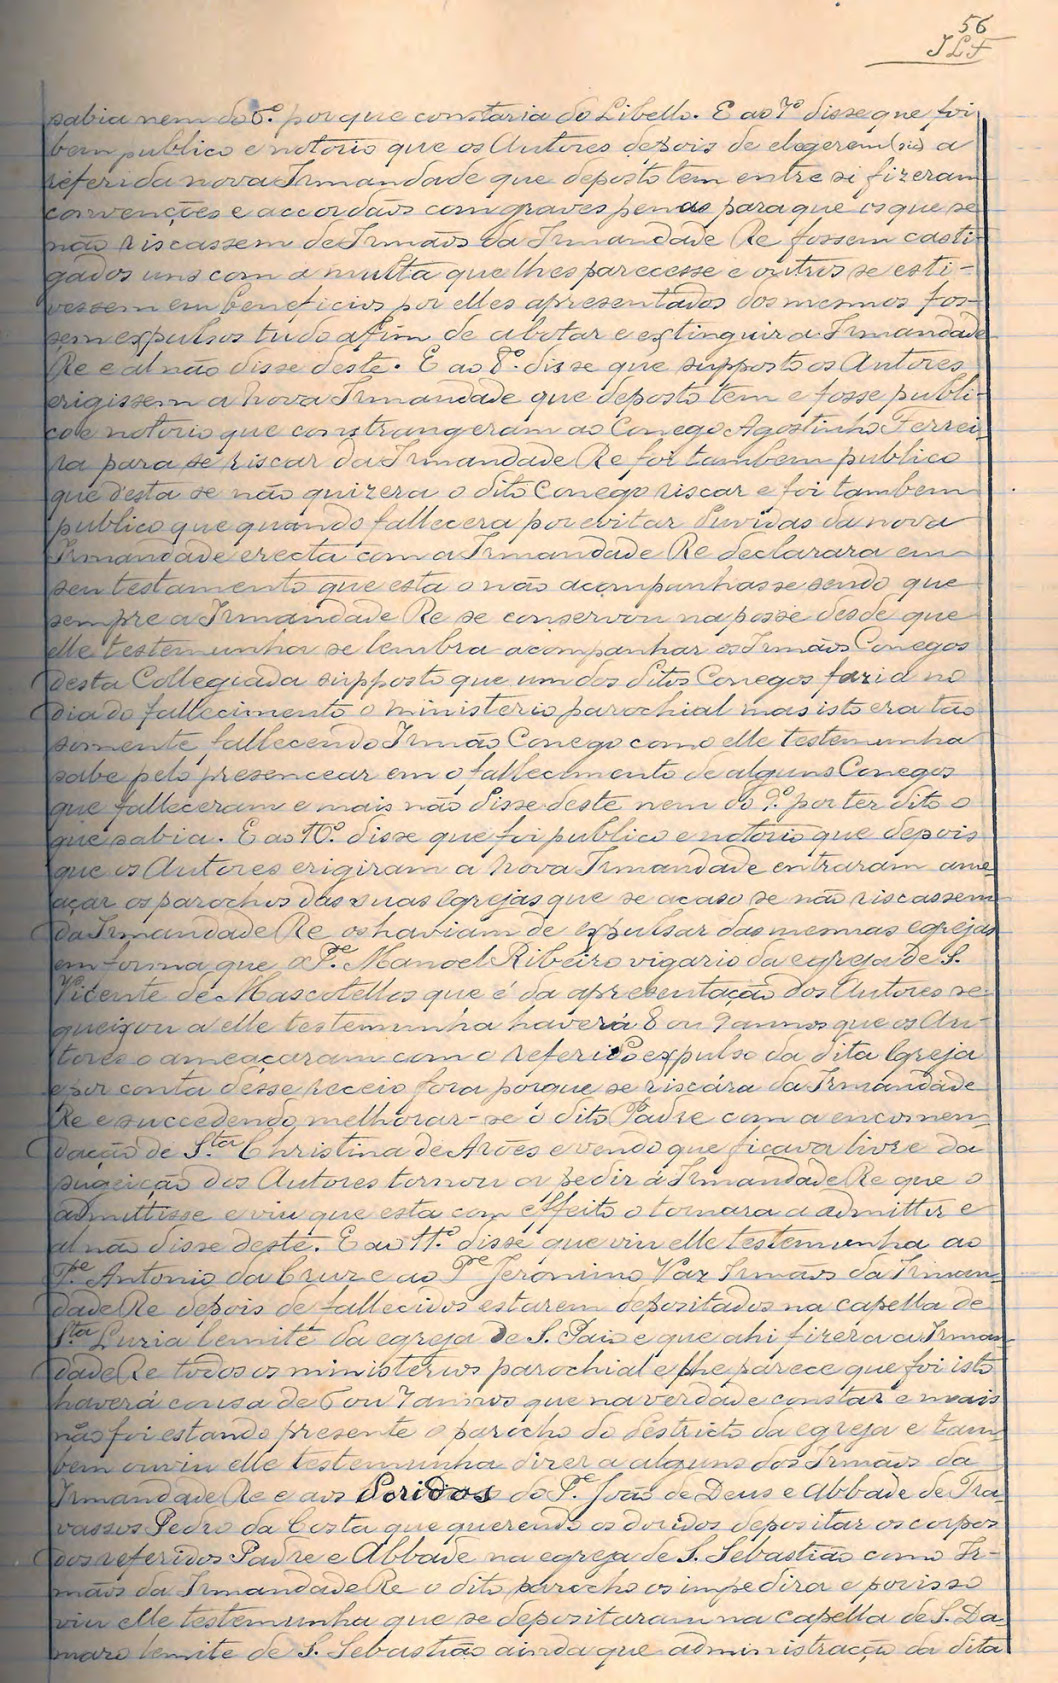 56
JLF
sabia nem do 6.º porque constaria do Libello. E ao 7º disse que foi
bem publico e notorio que os Autores depois de elegerem (sic) a
referida nova Irmandade que deposto tem entre si fizeram
convenções e accordãos com graves penas para que os que se
não riscassem de Irmãos da Irmandade Re fossem casti-
gados uns com a multa que lhes parecesse e outros se esti-
vessem em beneficios por elles apresentados dos mesmos fos-
sem expulsos tudo afim de abotar e extinguir a Irmandade
Re e al não disse deste. E ao 8º. disse que supposto os Autores
erigissem a nova Irmandade que deposto tem e fosse publi-
co e notorio que constrangeram ao Conego Agostinho Ferrei-
ra para se riscar da Irmandade Re foi tambem publico
que desta se não quizera o dito Conego riscar e foi tambem
publico que quando fallecera por evitar duvidas da nova
Irmandade erecta com a Irmandade Re declarara em
seu testamento que esta o não acompanhasse sendo que
sempre a Irmandade Re se conservou na posse desde que
elle testemunha se lembra acompanhar os Irmãos Conegos
desta Collegiada supposto que um dos ditos Conegos fazia no
dia do fallecimento o ministerio parochial mas isto era tão
somente fallecendo Irmão Conego como elle testemunha
sabe pelo presencear em o fallecimento de alguns Conegos
que falleceram e mais não disse deste nem do 9.º por ter dito o
que sabia. E ao 10º. disse que foi publico e notorio que depois
que os Autores erigiram a nova Irmandade entraram ame-
açar os parochos das suas Egrejas que se acaso se não riscassem
da Irmandade Re os haviam de expulsar das mesmas egrejas
em forma que o P.e Manoel Ribeiro vigario da egreja de S.
Vicente de Mascotellos que é da apresentação dos Autores se
queixou a elle testemunha haverá 8 ou 9 annos que os Au-
tores o ameaçaram com o referido expulso da dita Egreja
e por conta desse receio fora porque se riscára da Irmandade
Re e succedendo melhorar-se o dito Padre com a encomen-
dação de S.ta Christina de Arões e vendo que ficava livre da
sugeição dos Autores tornou a pedir á Irmandade Re que o
admittisse e viu que esta com effeito o tornara a admittir e
al não disse deste. E ao 11.º disse que viu elle testemunha ao
P.e Antonio da Cruz e ao P.e Jeronimo Vaz Irmãos da Irman-
dade Re depois de fallecidos estarem depositados na capella de
S.ta Luzia lemite da egreja de S. Paio e que ahi fizera a Irman-
dade Re todos os ministerios parochial e lhe parece que foi isto
haverá cousa de 6 ou 7 annos que na verdade constar e mais
não foi estando presente o parocho do destricto da egreja e tam-
bem ouviu elle testemunha dizer a alguns dos Irmãos da
Irmandade Re e aos Doridos do P.e João de Deus e Abbade de Tra-
vassos Pedro da Costa que querendo os doridos depositar os corpos
dos referidos Padre e Abbade na egreja de S. Sebastião como Ir-
mãos da Irmandade Re o dito parocho os impedira e por isso
viu elle testemunha que se depositaram na capella de S. Da-
mazo lemite de S. Sebastião ainda que administracção da dita